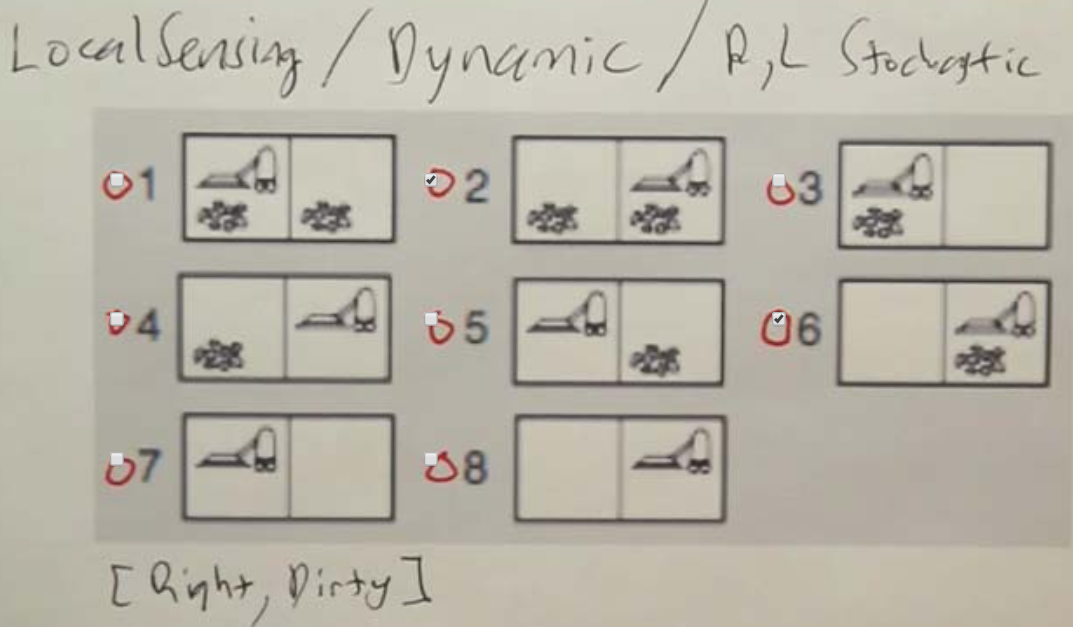 Local Sensing / Dynamic / R,L Stochastic
1 2 3
4 5 6
7 8
[Right, Dirty]